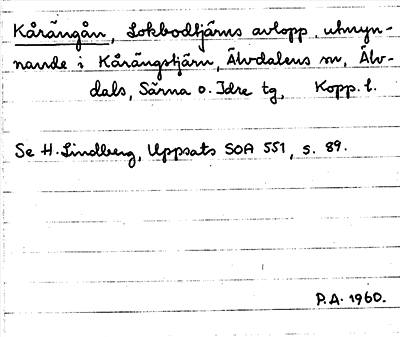 Kårängån, Lokbodtjärns avlopp, utmyn-
nande i Kårängstjärn, Älvdalens sn, Älv-
dals, Särna o. Idre tg, Kopp. l.
Se H. Lindberg, Uppsats SOA 551, s. 89.
P.A. 1960.